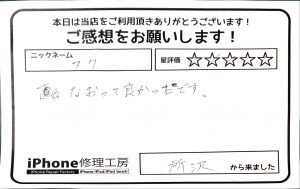 本日は当店をご利用頂きありがとうございます！
ご感想をお願いします！
ニックネーム
フク
星評価 ☆☆☆☆☆
なおって良かったです。
iPhone修理工房
iPhone Repair Factory iPhone/iPad/iPod touch
所沢 から来ました